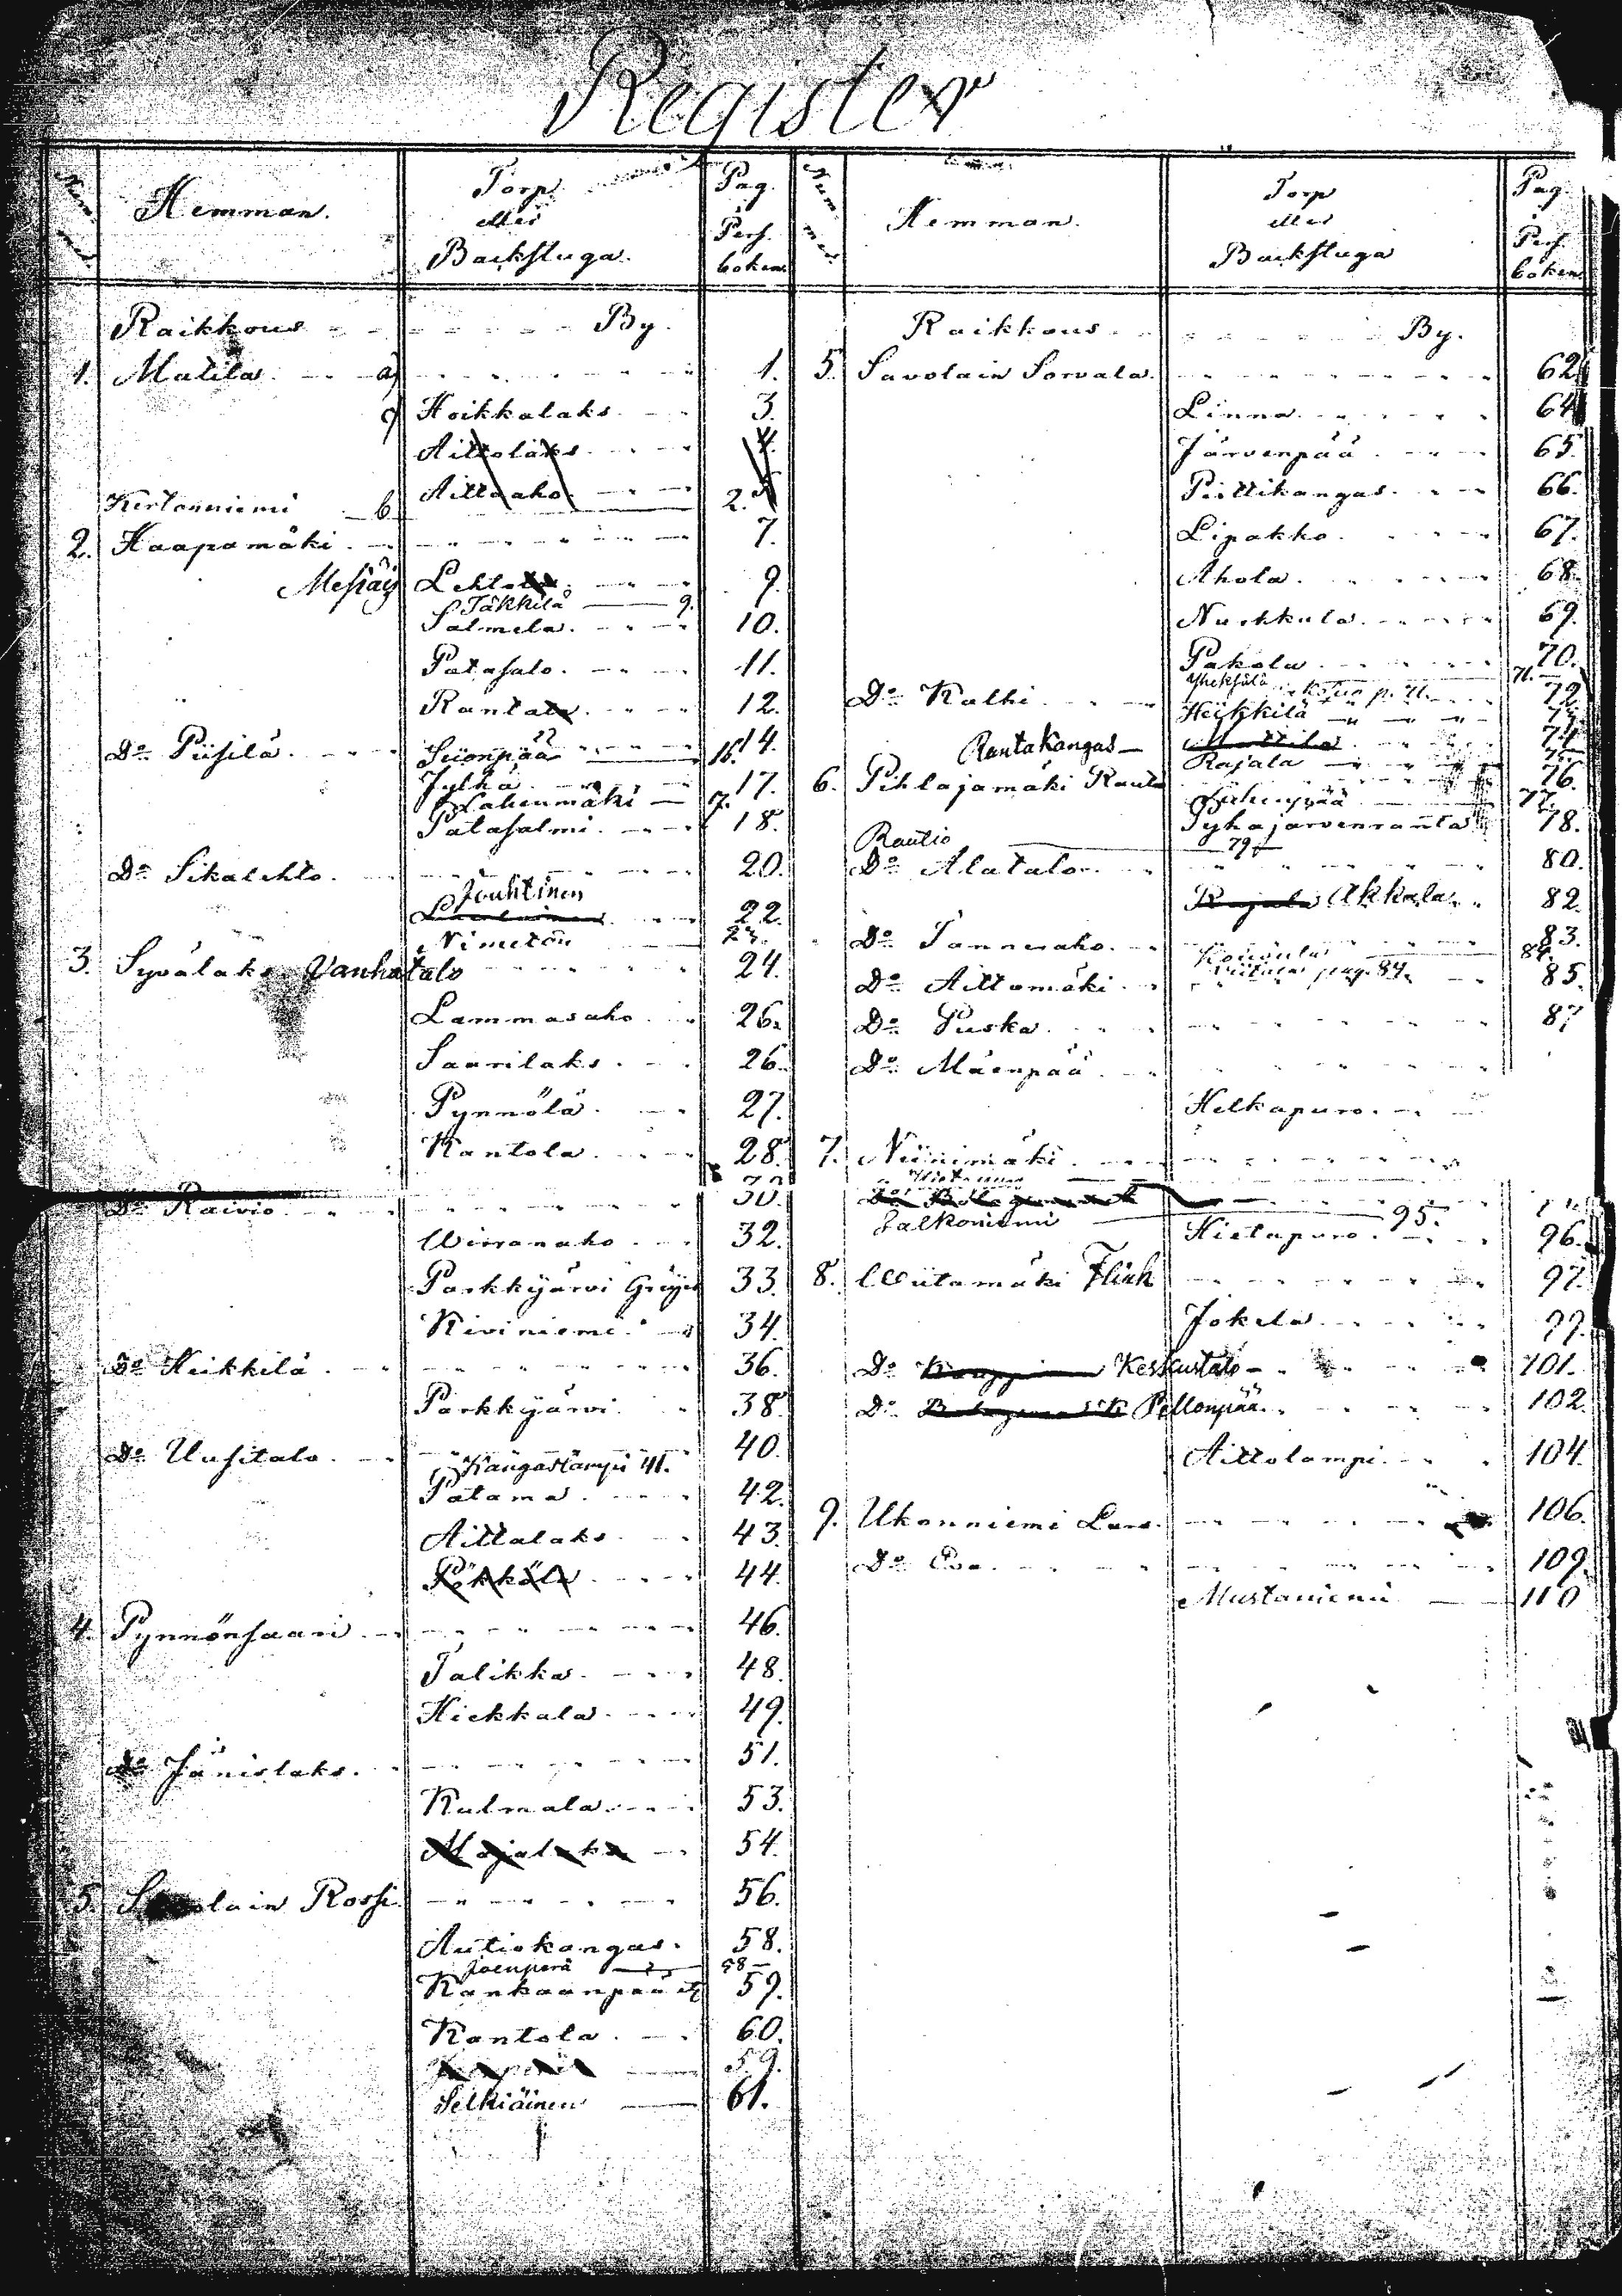 Register
Nummer Hemman. Torp eller Backstuga. Pag. i Pers. boken.
Raikkous By.
1. Matila a) 1.
c) Hoikkalaks 3.
Aittolaks 4.
Aittoaho
Kertonniemi b 2.
2. Haapamäki 7.
Mesiäis Lehtola 9.
Täkkilä 9.
Salmela 10.
Patasalo 11.
Rantala 12.
Do Piisilä 14.
Suonpää 16.
Jylhä 17.
Lahenmäki 17.
Patasalmi 18.
Do Sikalehto 20.
Jouhtinen 22.
Nimetön 23.
3. Syvälaks Vanhatalo 24.
Lammasaho 26.
Saarilaks 26.
Pynnölä 27.
Kantola 28.
Do Raivio 30.
Wirranaho 32.
Parkkijärvi 33.
Kiviniemi 34.
Do Heikkilä 36.
Parkkijärvi 38.
Do Uusitalo 40.
Kangaslampi 41.
Patama 42.
Aittalaks 43.
Pökkälä 44.
4. Pynnönsaari 46.
Talikka 48.
Hiekkala 49.
Do Jänislaks 51.
Kulmala 53.
Majalaks 54.
5. Savolain Rossi 56.
Autiokangas 58.
Joenperä 58
Kankaanpää 59.
Kantola 60.
59.
Selkiäinen 61.
Nummer Hemman. Torp eller Backstuga Pag. i Pers. boken.
Raikkous By.
5. Savolain Sorvala 62
Linna 64
Järvenpää 65.
Pirttikangas 66.
Lipakko 67.
Ahola 68.
Nurkkala 69.
Pakola 70.
Yheksälä 71.
Do Kalhi 72.
Heikkilä
Rantakangas Mattila 74
Rajala
6. Pihlajamäki Rauta 76.
Lahenpää 77.
Pyhäjärvenranta 78.
Rautio 79
Do Alatalo 80.
Rajala Akkala 82.
Do Tannisaho 83.
84.
Do Aittomäki pag. 84. 85.
Do Puska 87
Do Mäenpää
Helkapuro
7. Niinimäki
Salkoniemi 95.
Hietapuro 96.
8. Wiitamäki Flink 97.
Jokela 99.
Do Keskustalo 101.
Do Pellonpää 102.
Aittolampi 104.
9. Ukonniemi Lars 106.
Do Eva 109.
Mustaniemi 110